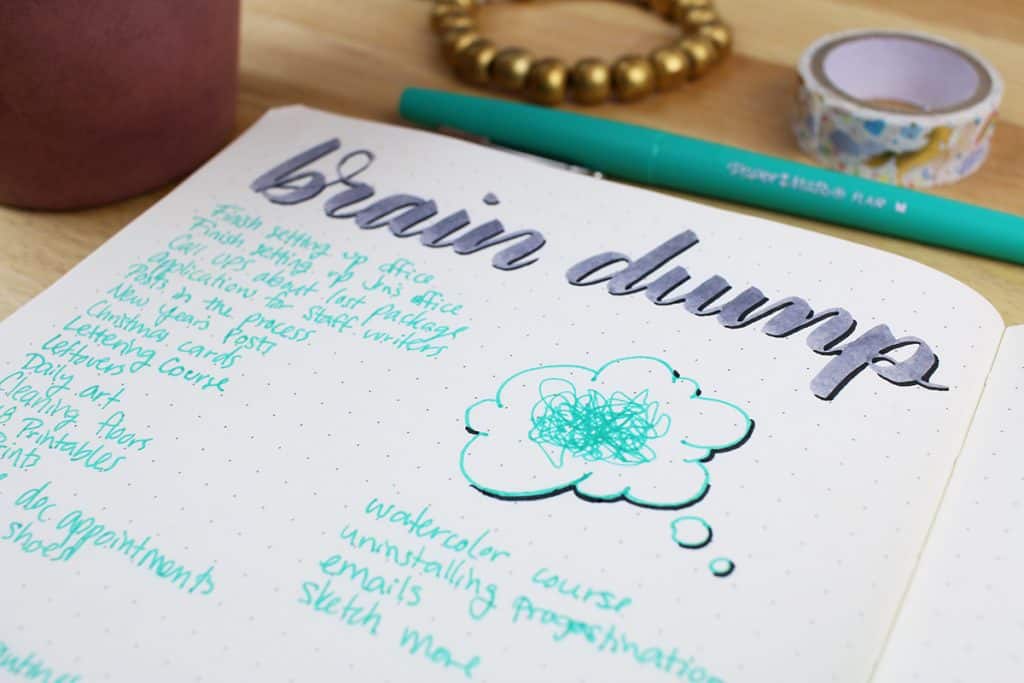 brain dump
Finish setting up office
Finish setting up office
Call UPS about last package
application to staff writers
Posts in the process
New Years Posts
Christmas cards
Lettering Course
Leftovers
Daily art
Cleaning floors
Printables
dec appointments
shoes!
watercolor course
uninstalling
emails
sketch more
Paper Mate FLAIR M